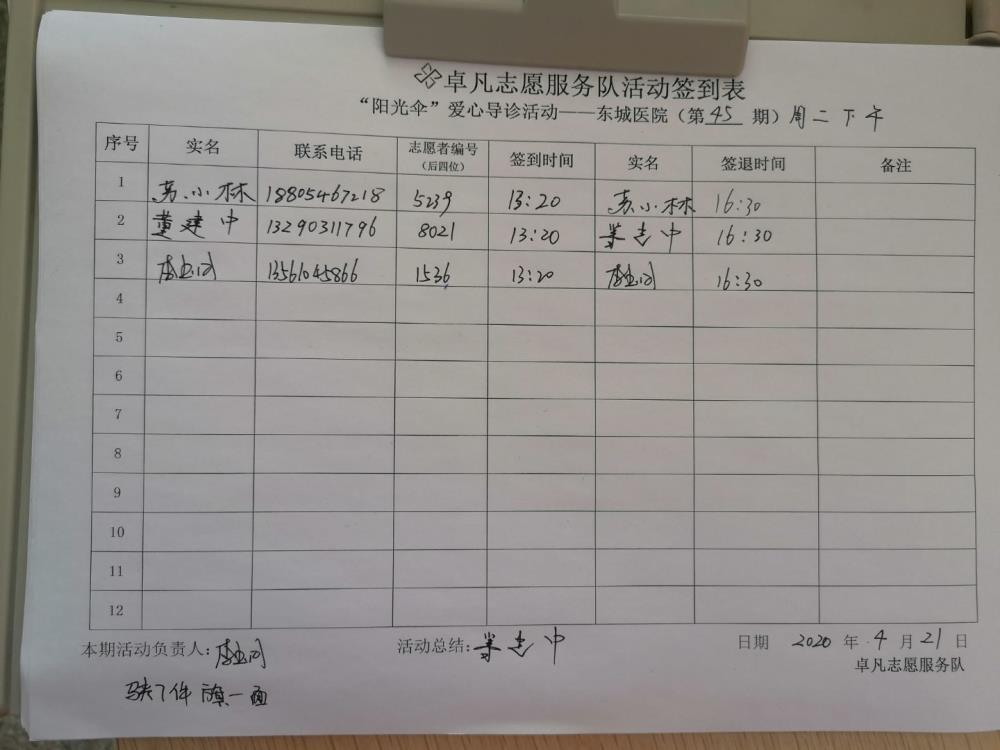 卓凡志愿服务队活动签到表
“阳光伞”爱心导诊活动——东城医院（第45期）周二下午
序号 实名 联系电话 志愿者编号（后四位） 签到时间 实名 签退时间 备注
1 苏小林 18805467218 5239 13:20 苏小林 16:30
2 董建中 13290311796 8021 13:20 董建中 16:30
3 13561045866 1536 13:20 16:30
4
5
6
7
8
9
10
11
12
本期活动负责人: 活动总结:董建中 日期 2020 年 4 月 21 日
卓凡志愿服务队
旗一面